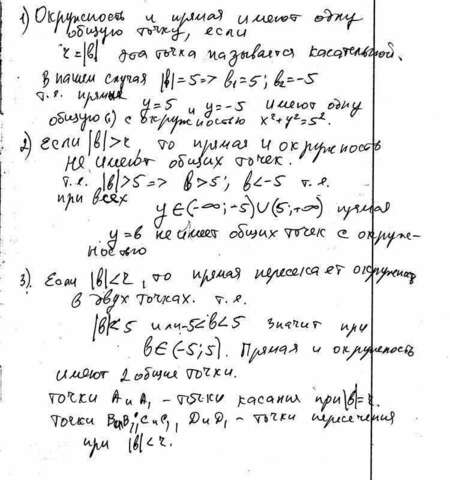 1) Окружность и прямая имеют одну
общую точку, если
r=|b| эта точка называется касательной.
В нашем случая |b|=5=> b₁=5; b₂=-5
т.е. прямые y=5 и y=-5 имеют одну
общую(ю) с окружностью x²+y²=5².
2) Если |b|>r, то прямая и окружность
не имеют общих точек.
т.е. |b|>5 => b>5; b<-5 т.е.
при всех y∈(-∞;-5)∪(5;+∞) прямая
y=b не имеет общих точек с окруж-
ностью
3). Если |b|<r, то прямая пересекает окружность
в двух точках. т.е.
|b|<5 или -5<b<5 значит при
b∈(-5;5). Прямая и окружность
имеют 2 общие точки.
точки A и A₁ - точки касания при |b|=r.
точки B и B₁; C и C₁, D и D₁ - точки пересечения
при |b|<r.